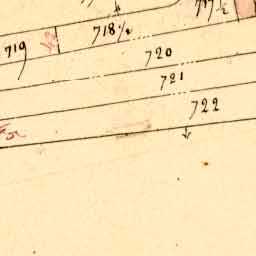 717½
718½
719
720
721
722